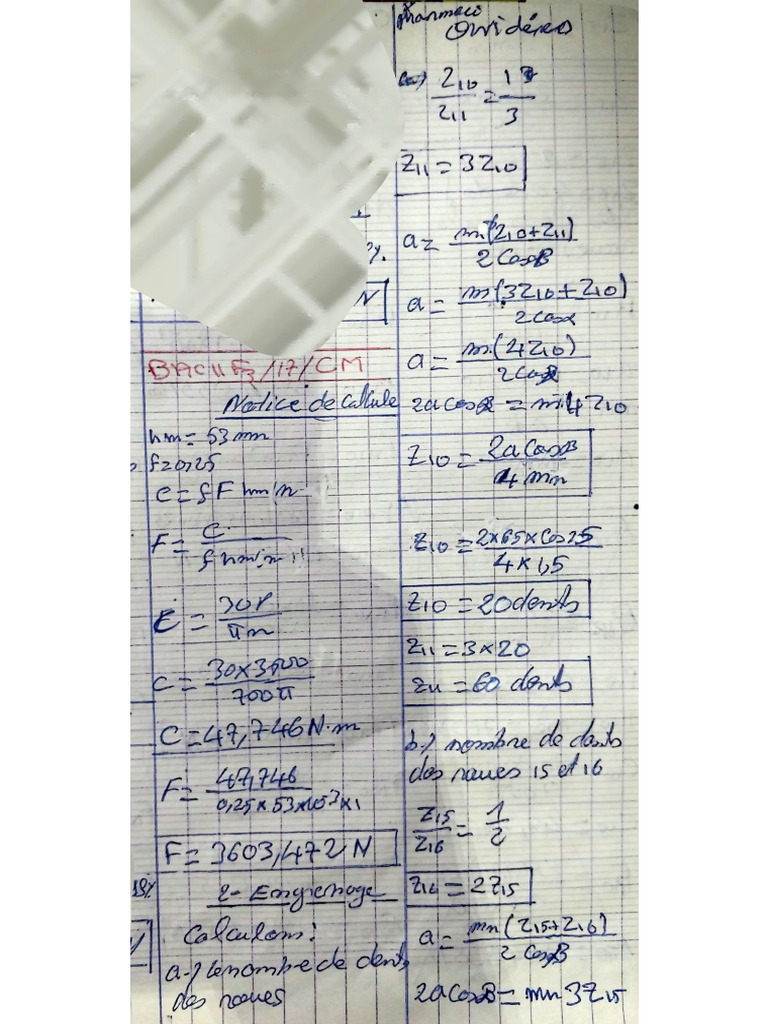 %.
N
BAC II F3/17/CM
Notice de Calcule
hm = 53mm
f=0,25
C = f F hm i n
F = C / f hm i n
C = 30P / πn
C = 30×3500 / 700π
C = 47,746 N.m
F = 47,746 / 0,25×53×10⁻³×1
F = 3603,472 N
2- Engrenage
Calculons:
a-) le nombre de dents
des roues
pharmaco
Z10 / Z11 = 1 / 3
Z11 = 3Z10
a = mn(Z10+Z11) / 2CosB
a = m(3Z10+Z10) / 2Cosα
a = m(4Z10) / 2Cosα
2a cosα = m.4Z10
Z10 = 2a CosB / 4 mn
Z10 = 2×65×Cos25 / 4×1,5
Z10 = 20 dents
Z11 = 3×20
Z11 = 60 dents
b-) nombre de dents
des roues 15 et 16
Z15 / Z16 = 1 / 2
Z16 = 2Z15
a = mn(Z15+Z16) / 2 CosB
2a cosB = mn 3Z15